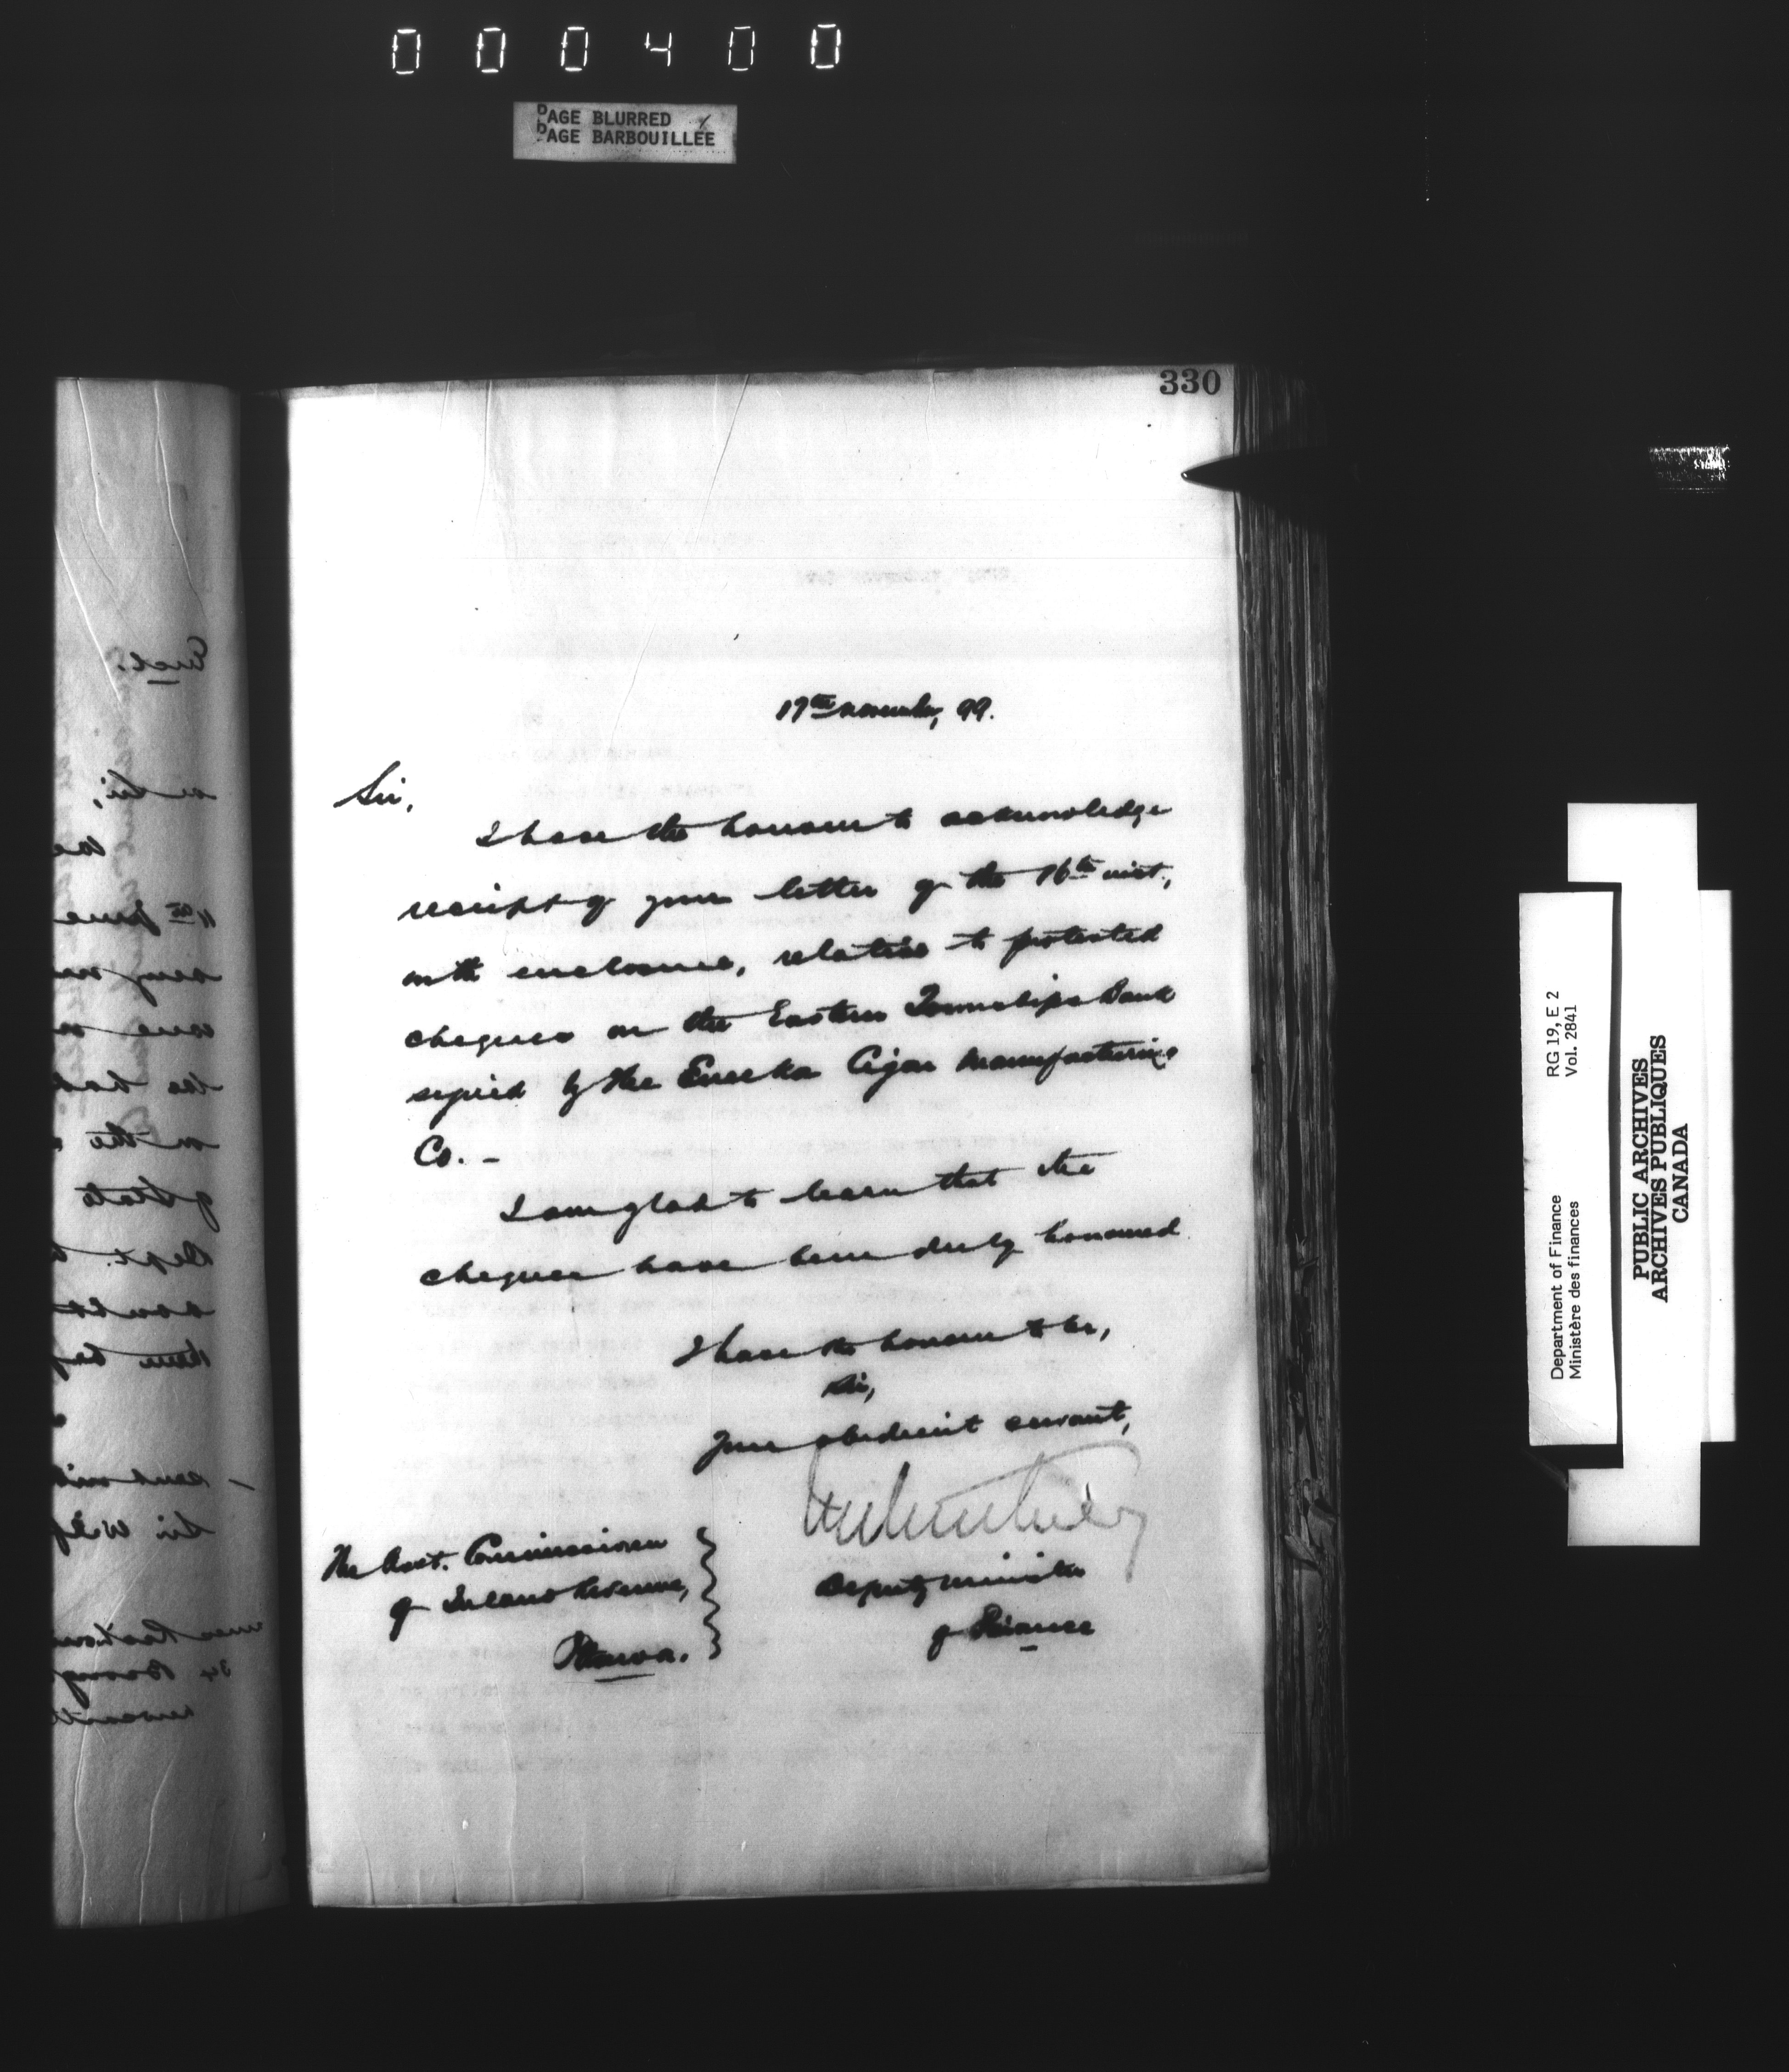 000400
PAGE BLURRED
PAGE BARBOUILLÉE
330
17th November, 99.
Sir,
I have the honour to acknowledge
receipt of your letter of the 16th inst,
with enclosure, relative to protested
cheques on the Eastern Townships Bank
signed by the Eureka Cigar Manufacturing
Co. -
I am glad to learn that the
cheques have been duly honoured
I have the honour to be,
Sir,
Your obedient servant,
Deputy Minister
of Finance
The Asst. Commissioner
of Inland Revenue,
Ottawa.
Encl.
Sir,
11th June
on the
of State
Dept.
Department of Finance
Ministère des finances
RG 19, E 2
Vol. 2841
PUBLIC ARCHIVES
ARCHIVES PUBLIQUES
CANADA